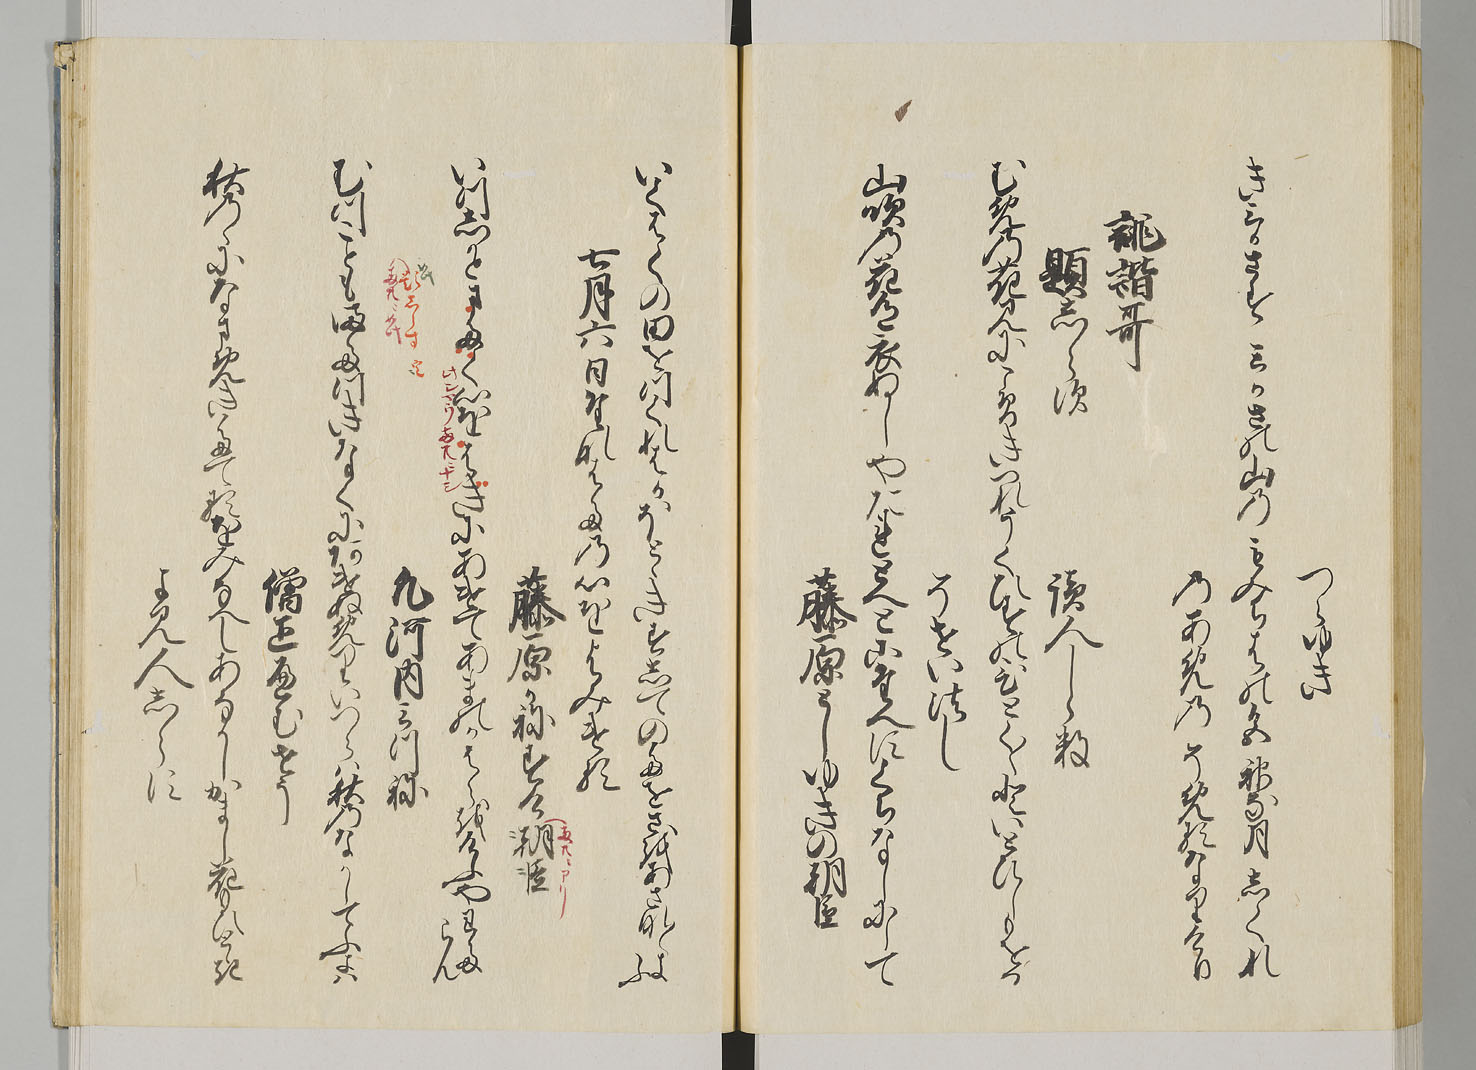 つらゆき
きみかさすみかさの山のもみちはのいろ神な月しくれ
のあめのそめるなりけり
誹諧哥
題しらす 読人しらす
むめの花見にこそきつれうくひすのひとくひとくといとひしもをる
そせい法し
山吹の花色衣ぬしやたれとへとこたへすくちなしにして
藤原としゆきの朝臣
いくはくの田をつくれはかほとときすしてのたをさをあさなあさなよふ
七月六日たなはたの心をよみける
藤原かねすけ朝臣
いつしかとまたく心をはきにあけてあまのかはらをけふやわたらん
凡河内みつね
むつこともまたつきなくにあけぬめりいつらは秋のなかしてふよは
僧正へむせう
秋のゝになまめきたてるをみなへしあなかしかまし花もひととき
よみ人しらす